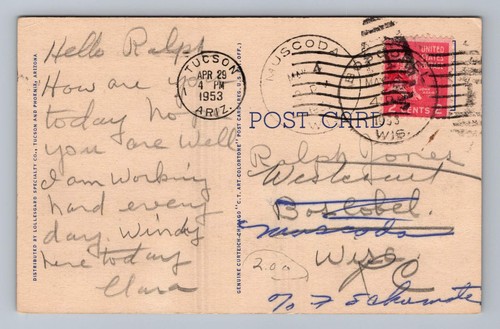 Hello Ralph
How are you
today hope
you are well
I am working
hard every
day. Windy
here today
Clara
DISTRIBUTED BY LOLLESGARD SPECIALTY CO., TUCSON AND PHOENIX, ARIZONA
GENUINE CURTEICH-CHICAGO "C.T. ART-COLORTONE" POST CARD (REG. U.S. PAT. OFF.)
TUCSON
APR 29
4 PM
1953
ARIZ.
MUSCODA
1953
WIS.
UNITED
STATES
CENTS
POST CARD
Ralph Jones
Boscobel
Muscoda
Wisc
200